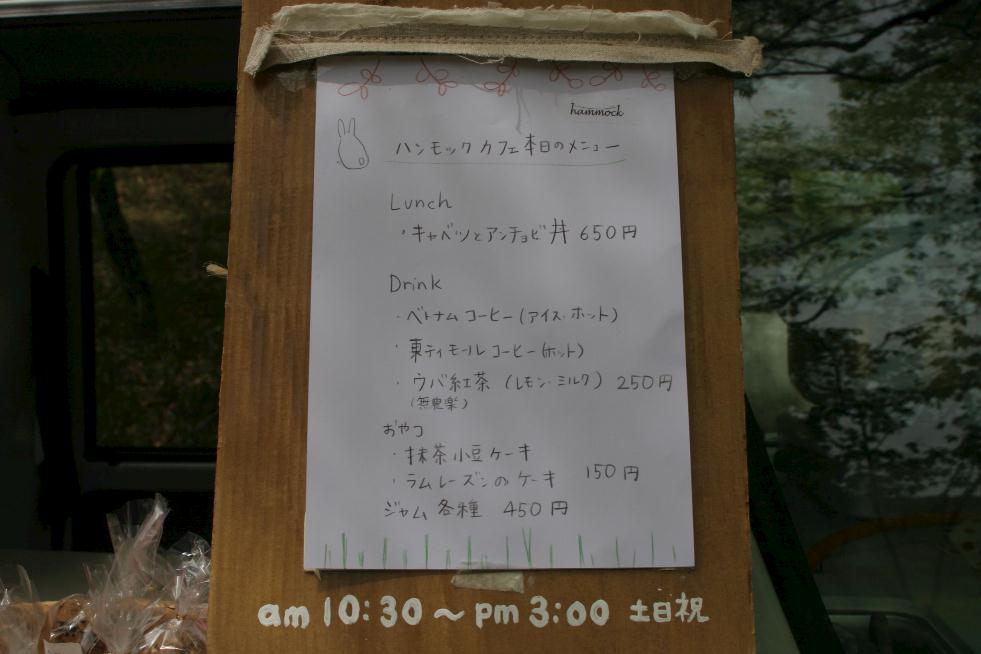 hammock
ハンモックカフェ本日のメニュー
Lunch
・キャベツとアンチョビ丼 650円
Drink
・ベトナムコーヒー(アイス・ホット)
・東ティモールコーヒー(ホット)
・ウバ紅茶 (レモン・ミルク) 250円
(無農薬)
おやつ
・抹茶小豆ケーキ
・ラムレーズンのケーキ 150円
ジャム各種 450円
am 10:30 ~ pm 3:00 土日祝